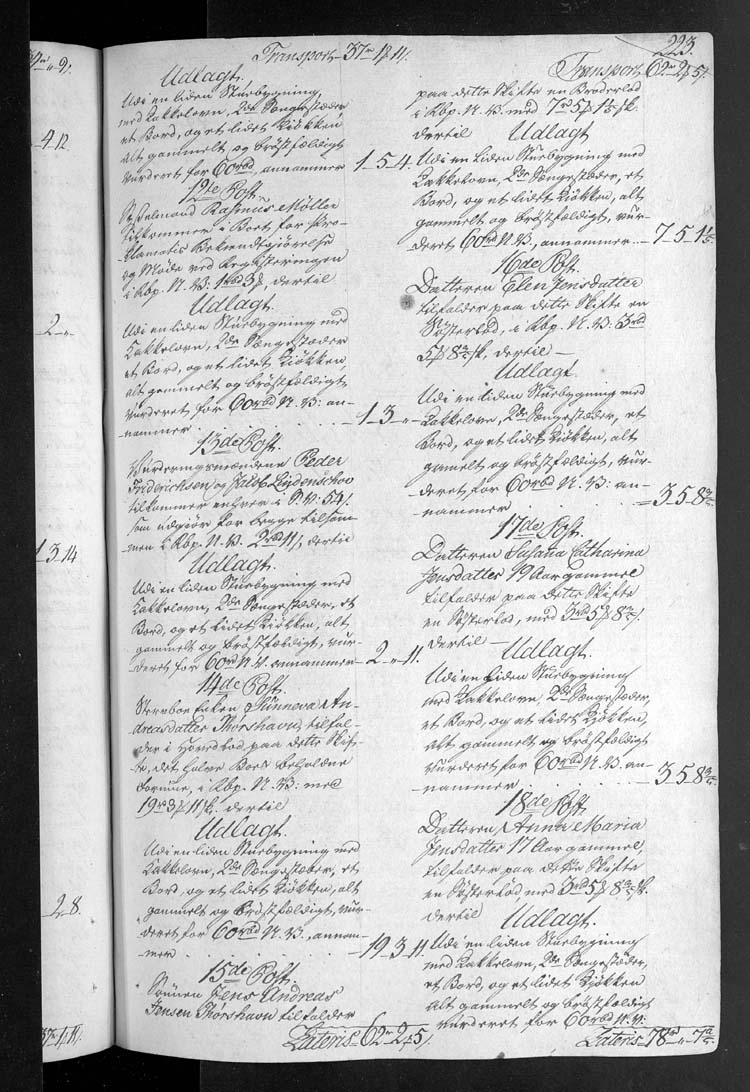 37rd " 9/.
4. 12
2 "
1. 3. 14
2. 8.
37rd 1/ 11/.
Transport 37rd 1/ 11/.
Udlagt.
Udi en liden Stuebygning,
med Kakkelovn, 2de Sængestæder
et Bord, og et lidet Kiökken,
alt gammelt og bröstfældigt
vurderet for 60rbd, annammer 1 5 4.
12te Post.
Rasmus Möller
tilkommer i Boet for Pro-
klamatis Bekiendtgiørelse
og Møde ved Registeringen
i Rbp. N. V. 1rbd 3/ dertil
Udlagt.
Udi en liden Stuebygning med
Kakkelovn, 2de Sængestæder
et Bord, og et lidet Kiökken,
alt gammelt og bröstfældigt,
vurderet for 60rbd N. V. an-
nammer 1 3 "
13de Post.
Vurderingsmændene Peder
Friderichsen og Jacob Lützenschov
tilkommer enhver i S. V. 54/.
som udgiør for begge tilsam-
men i Rbp. N. V. 2rbd 11/, dertil
Udlagt.
Udi en liden Stuebygning med
Kakkelovn, 2de Sængestæder, et
Bord, og et lidet Kiökken, alt
gammelt og bröstfældigt, vur-
deret for 60rd N. V. annammer 2 " 11.
14de Post.
Sterboe Enken Sunneva An-
dreasdatter Thorshavn, tilfal-
der i Hovedlod paa dette Skif-
te, det halve Boets beholdne
Formue, i Rbp. N. V. med
19rd 3/ 11/k. dertil
Udlagt.
Udi en liden Stuebygning med
Kakkelovn, 2de Sængestæder, et
Bord, og et lidet Kiökken, alt
gammelt og bröstfældigt, vur-
deret for 60rbd N. V. annam-
mer 19 3 11.
15de Post.
Sönnen Jens Andreas
Jensen Thorshavn tilfalder
Lateris 62rd 2/ 5/.
223.
Transport 62rd 2/ 5/.
paa dette Skifte en Broderlod
i Rbp. N. V. med 7rd 5/ 1 1/5 sk.
dertil
Udlagt
Udi en liden Stuebygning med
Kakkelovn, 2de Sængestæder, et
Bord, og et lidet Kiökken, alt
gammelt og bröstfældigt, vur-
deret 60rd N. V., annammer 7 5 1 1/5
16de Post.
Datteren Elen Jensdatter
tilfalder paa dette Skifte en
Søsterlod, i Rbp. N. V. 3rbd
5/ 8 3/5 sk, dertil
Udlagt.
Udi en liden Stuebygning med
Kakkelovn, 2de Sængestæder, et
Bord, og et lidet Kiökken, alt
gamelt og bröstfældigt, vur-
deret for 60rbd N. V. an-
nammer 3 5 8 3/5
17de Post.
Datteren Susana Catharina
Jensdatter 19 Aar gammel
tilfalder paa dette Skifte
en Søsterlod, med 3rd 5/ 8 3/5.
dertil
Udlagt.
Udi en liden Stuebygning
med Kakkelovn, 2de Sængestæder,
et Bord, og et lidet Kjökken,
alt gammelt og bröstfældigt
vurderet for 60rbd N. V. an-
nammer 3 5 8 3/5
18de Post.
Datteren Anna Maria
Jensdatter 17 Aar gammel,
tilfalder paa dette Skifte
en Søsterlod med 3rd 5/ 8 3/5 sk.
dertil
Udlagt.
Udi en liden Stuebygning
med Kakkelovn, 2de Sængestæder,
et Bord, og et lidet Kiökken
alt gammelt og bröstfældigt
vurderet for 60rbd N. V.
Lateris 78rd " 7 2/5